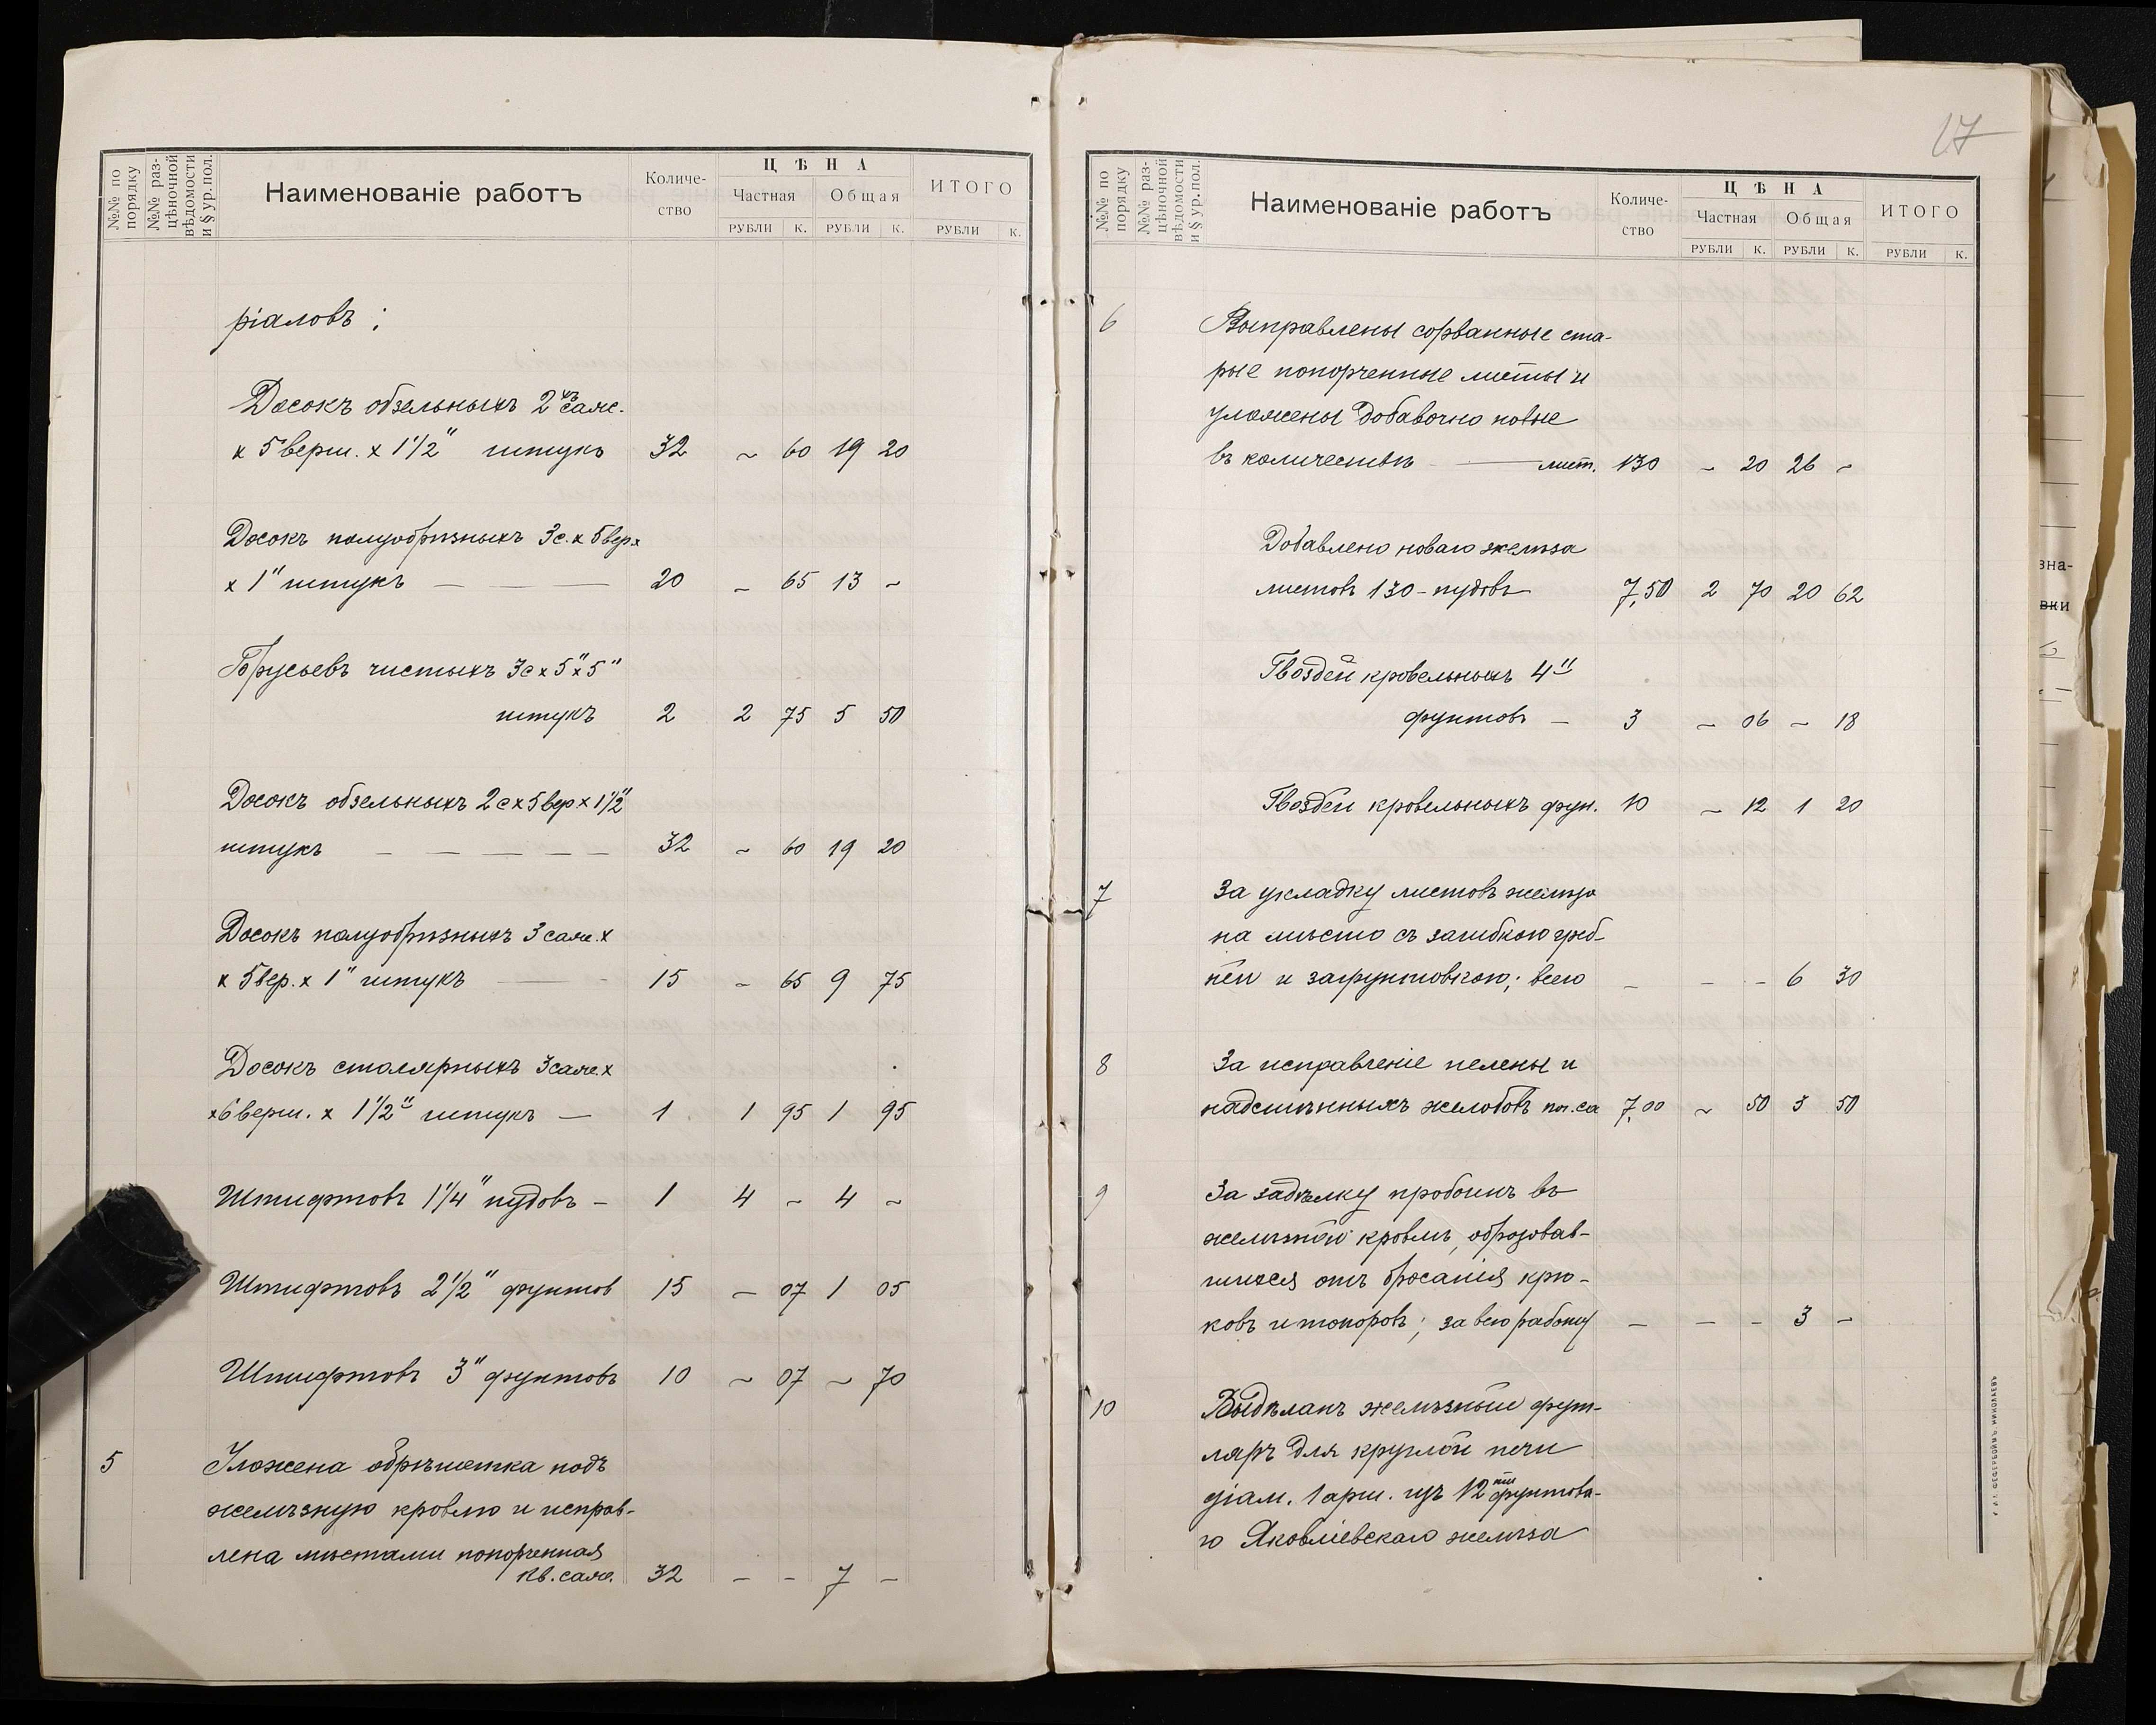 №№ по порядку
№№ раз-
цѣночной
вѣдомости
и § ур. пол.
Наименованіе работъ
Количе-
ство
ЦѢНА
Частная
Общая
ИТОГО
РУБЛИ К. РУБЛИ К. РУБЛИ К.
ріаловъ;
Досокъ обзельныхъ 2хъ саж.
х 5 верш. х 1 1/2" штукъ 32 ~ 60 19 20
Досокъ полуобрѣзныхъ 3с. х 5 вер х
х 1" штукъ — — 20 ~ 65 13 ~
Брусьевъ чистыхъ 3с х 5" х 5"
штукъ 2 2 75 5 50
Досокъ обзельныхъ 2с х 5 вер х 1 1/2"
штукъ — — — — — 32 ~ 60 19 20
Досокъ полуобрѣзныхъ 3 саж. х
х 5 вер. х 1" штукъ — 15 ~ 65 9 75
Досокъ столярныхъ 3 саж. х
х 6 верш. х 1 1/2" штукъ — 1 1 95 1 95
Штифтовъ 1 1/4" пудовъ – 1 4 ~ 4 ~
Штифтовъ 2 1/2" фунтов 15 — 07 1 05
Штифтовъ 3" фунтовъ 10 ~ 07 ~ 70
5 Уложена обрѣшетка подъ
желѣзную кровлю и исправ-
лена мѣстами попорченная
кв. саж. 32 — – 7 –
17
№№ по порядку
№№ раз-
цѣночной
вѣдомости
и § ур. пол.
Наименованіе работъ
Количе-
ство
ЦѢНА
Частная
Общая
ИТОГО
РУБЛИ К. РУБЛИ К. РУБЛИ К.
6 Выправлены сорванные ста-
рые попорченные листы и
уложены добавочно новые
въ количествѣ — лист. 130 ~ 20 26 ~
Добавлено новаго желѣза
листовъ 130 – пудовъ 7,50 2 70 20 62
Гвоздей кровельныхъ 4"
фунтовъ — 3 ~ 06 ~ 18
Гвоздей кровельныхъ фун. 10 ~ 12 1 20
7 За укладку листовъ желѣза
на мѣсто съ загибкою греб-
ней и загрунтовкою; всего – – – 6 30
8 За исправленіе пелены и
надстѣнныхъ желобовъ по. са 7,00 ~ 50 3 50
9 За задѣлку пробоинъ въ
желѣзной кровлѣ, образовав-
шихся отъ бросанія крю-
ковъ и топоровъ; за всю работу — — – 3 –
10 Выдѣланъ желѣзный фут-
ляръ для круглой печи
діам. 1 арш. изъ 12ти фунтова-
го Яковлевскаго желѣза
зна-
вки